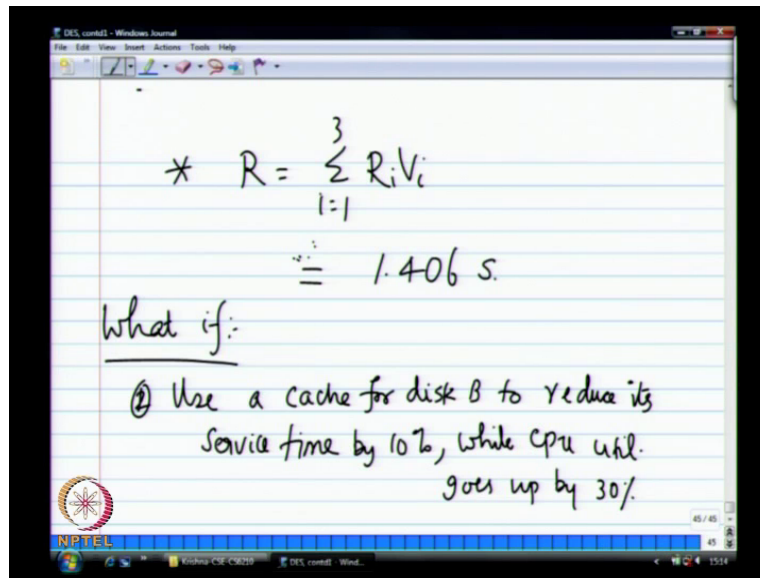 DES, contd1 - Windows Journal
File Edit View Insert Actions Tools Help
3
* R = Σ RiVi
i=1
= 1.406 s.
What if:-
② Use a cache for disk B to reduce its
Service time by 10%, while cpu util.
goes up by 30%.
NPTEL
45/45
45
Krishna-CSE-CS6210
DES, contd1 - Wind...
1514